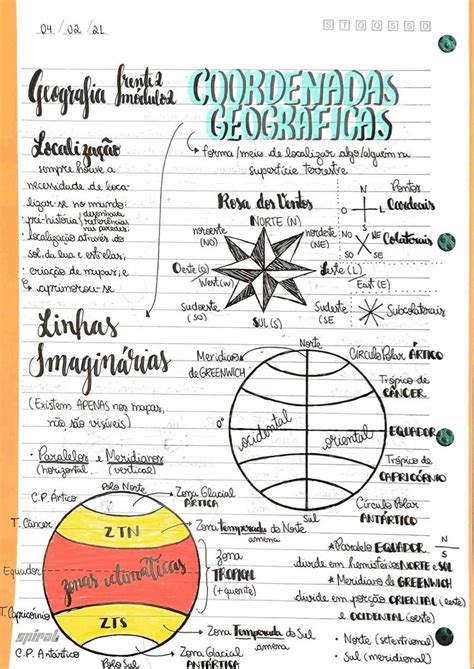 04 / 02 / 21
S T Q Q S S D
Geografia frente 2
módulo 2
COORDENADAS
GEOGRÁFICAS
↳ forma/meio de localizar algo/alguém na
superfície terrestre
Localização
sempre houve a
necessidade de loca-
lizar-se no mundo:
· pré-história (desenhavam
referências
nas paredes;
· localização através do
sol, da lua e estrelas;
· criação de mapas; e
↳ aprimorou-se
Rosa dos Ventos
NORTE (N)
noroeste
(NO)
nordeste
(NE)
Oeste (O)
West (W)
Leste (L)
East (E)
Sudoeste
(SO)
SUL (S)
Sudeste
(SE
Pontos
Cardeais
N
O
L
S
Colaterais
NO
NE
SO
SE
Subcolaterais
Linhas
Imaginárias
(Existem APENAS nos mapas,
não são visíveis)
· Paralelos e Meridianos
(horizontal) (vertical)
Norte
Meridiano
de GREENWICH
Círculo Polar ÁRTICO
Trópico de
CÂNCER
0°
ocidental
oriental
EQUADOR
Trópico de
CAPRICÓRNIO
Círculo Polar
ANTÁRTICO
Sul
Polo Norte
C.P. Ártico
Zona Glacial
ÁRTICA
T. Câncer
ZTN
Zona Temperada do Norte
amena
Equador
zonas climáticas
zona
TROPICAL
(+ quente)
T. Capricórnio
ZTS
Zona Temperada do Sul
amena
C.P. Antártico
Polo Sul
Zona Glacial
ANTÁRTICA
spiral
* Paralelo EQUADOR N
S
divide em hemisférios NORTE e SUL
* Meridiano de GREENWICH
divide em porção ORIENTAL (leste)
e OCIDENTAL (oeste)
· Norte (setentrional)
· Sul (meridional)